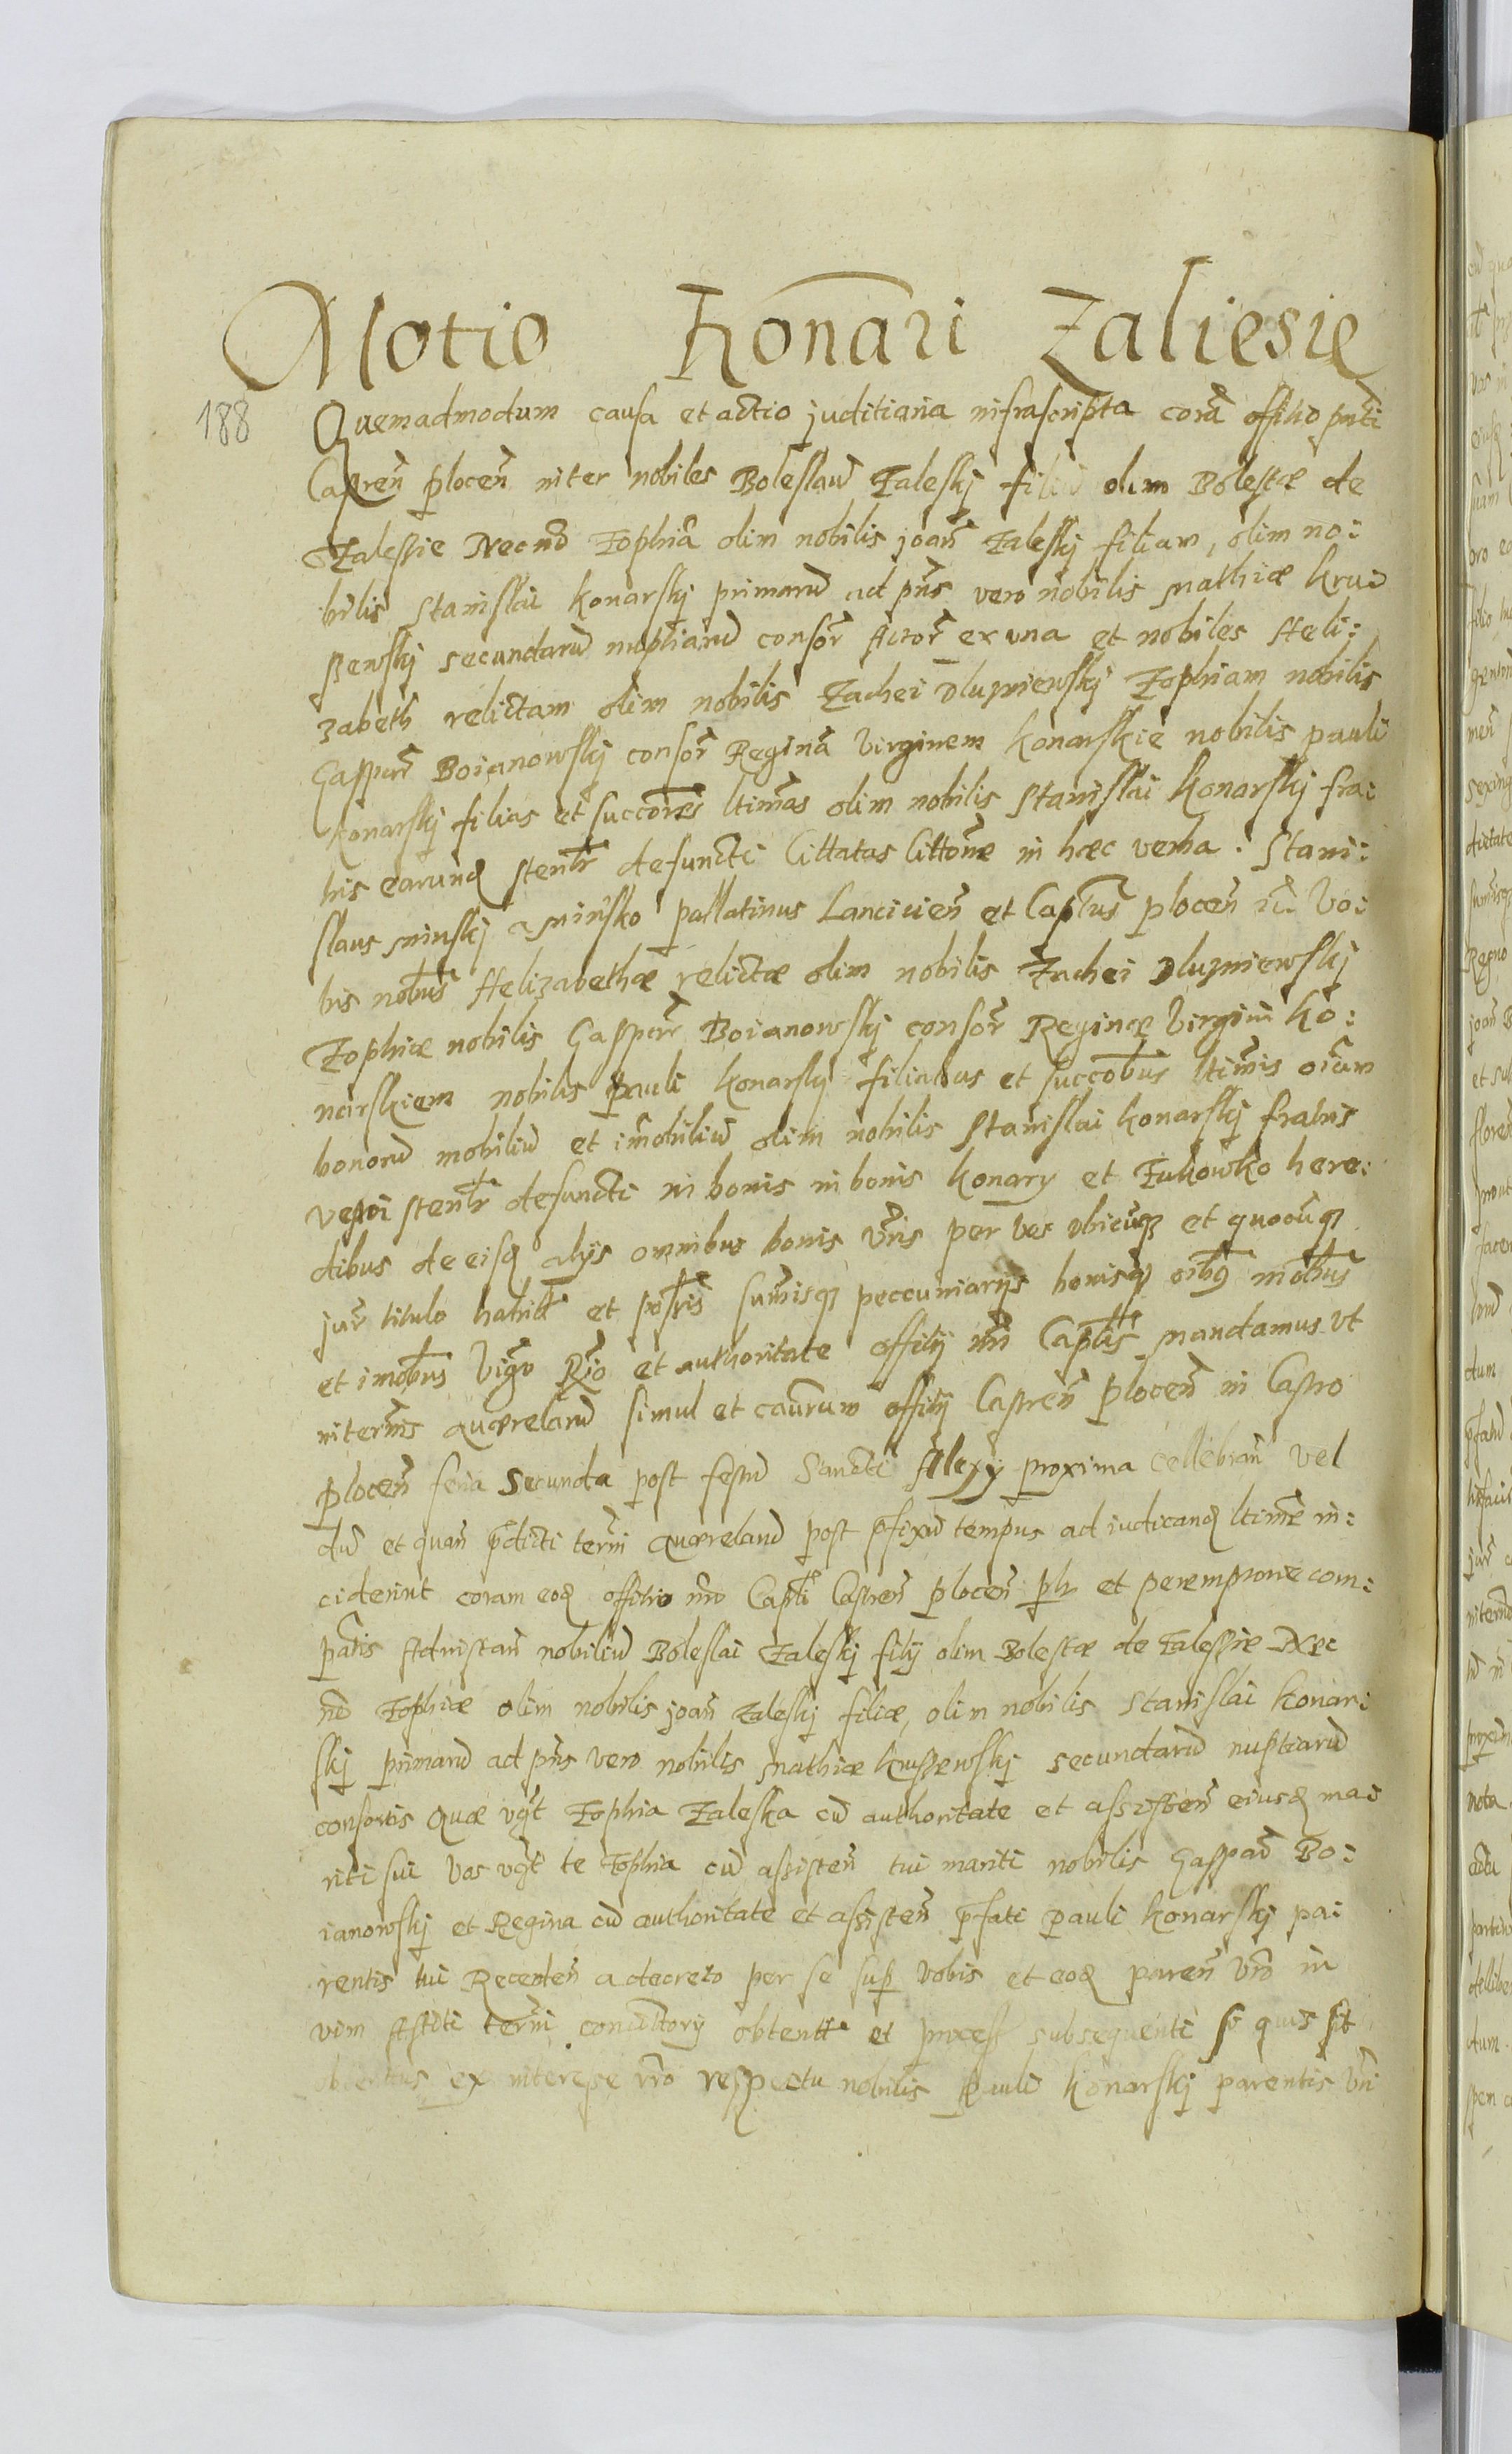 Motio Konari Zaliesie
188
Quemadmodum causa et actio juditiaria infrascripta corā offitio pn̄ti
Castren̄ plocen̄ inter nobiles Boleslaū Zaleskj filiū olim Bolestæ de
Zalessie Necnō Zophiā olim nobilis joan̄ Zaleskj filiam, olim no:
bilis Stanislai Konarskj primarū ad pn̄s vero nobilis Mathiæ Kru:
szewskj secundarū nuptiarū consor̄ Actor̄ ex una et nobiles Heli:
zabeth relictam olim nobilis Zachei Dluzniewskj Zophiam nobilis
Gasparr̄ Boianowskj consor̄ Reginā Virginem Konarskie nobilis pauli
Konarskj filias et succōres ltimas olim nobilis Stanislai Konarskj fra:
tris earund stenlr̄ defuncti Cittatas Cittōne in hæc verba. Stani:
slaus Minskj a Minsko pallatinus Lancicien̄ et Captūs plocen̄ Vo:
bis nobūs Helizabethæ relictæ olim nobilis Zachei Dluzniewskj
Zophiæ nobilis Gasparr̄ Boianowskj consor̄ Reginæ Virgini Ko:
narskiem nobilis Pauli Konarskj filiabus et succobūs ltimis oīum
bonorū mobiliū et imobiliū olim nobilis Stanislai Konarskj fratris
vestri stenlr̄ defuncti in bonis in bonis Konary et Zukowko here:
dibus de eisd alijs omnibus bonis vr̄is per vos ubicūq et quocūq
jur̄ titulo habitt et possis sumisq peccuniarijs bonisq oībq mobūs
et imobūs Vigo Rō et authoritate offitij nr̄i Captlis mandamus ut
in termis quærelarū simul et causarum offitij Castren̄ plocen̄ in Castro
plocen̄ feria Secunda post festū Sancti Alexy proxima cellebran̄ vel
dū et quan̄ prædicti termi quærelarū post præfixū tempus ad iudicand ltime in:
ciderint coram eod offitio nr̄o Capti Castren̄ plocen̄ plr et peremptorie com:
pātis Ad instan̄ nobiliū Boleslai Zaleskj filij olim Bolestæ de Zalessie Nec
nō Zophiæ olim nobilis joan̄ Zaleskj filiæ, olim nobilis Stanislai Konar:
skj primarū ad pn̄s vero nobilis Mathiæ Kruszewskj secundarū nuptiarū
consortis Quæ vgt Zophia Zaleska cū authoritate et assisten̄ eiusd ma:
riti sui Vos vgt te Zophia cū assisten̄ tui mariti nobilis Gaspar̄ Bo:
ianowskj et Regina cū authoritate et assisten̄ præfati Pauli Konarskj pa:
rentis tui Receden̄ a decreto per se sup vobis et eod paren̄ vr̄o in
vim Astiti termi concittorij obtentt et process subsequenti si quis sit
obtentus ex interesse vr̄o respectu nobilis Pauli Konarskj parentis vr̄i